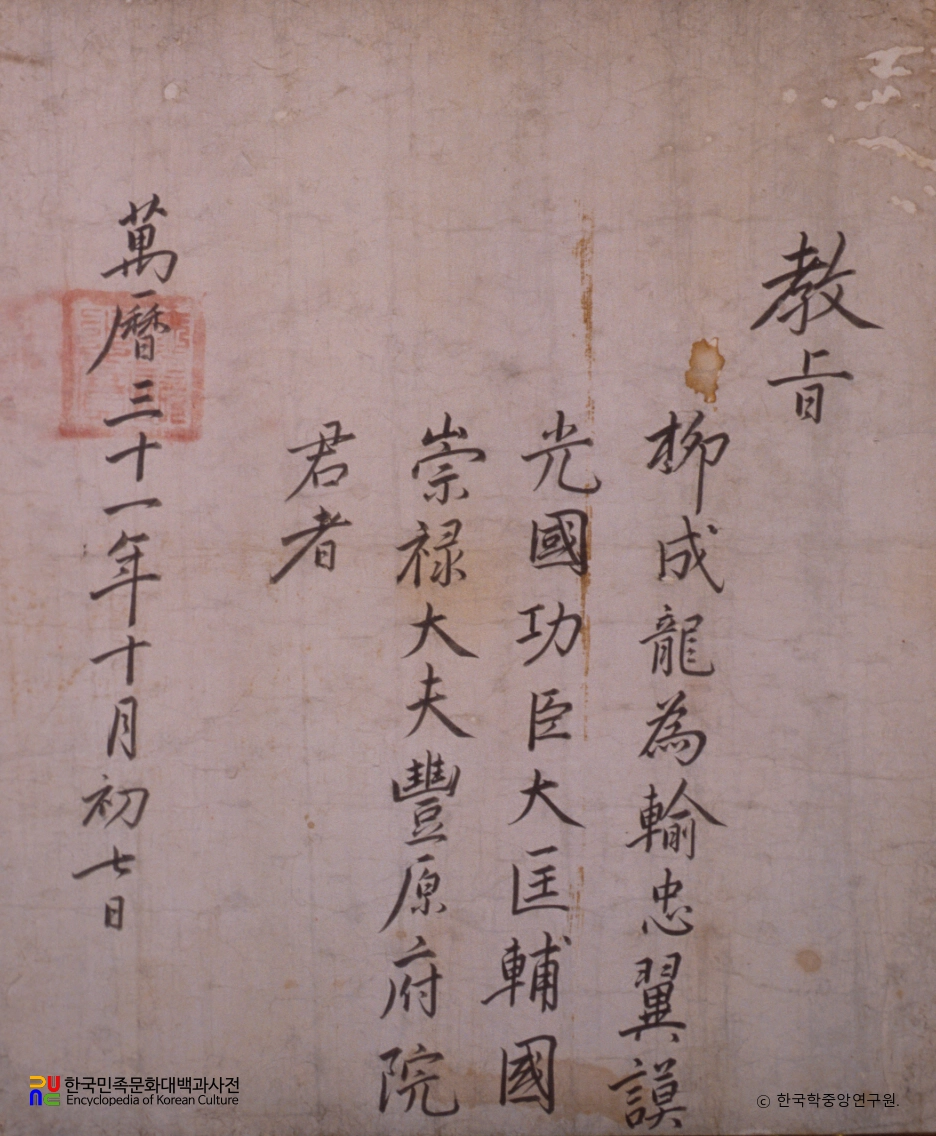 教旨
柳成龍為輸忠翼謨
光國功臣大匡輔國
崇禄大夫豐原府院
君者
萬曆三十一年十月初七日
한국민족문화대백과사전
Encyclopedia of Korean Culture
© 한국학중앙연구원.